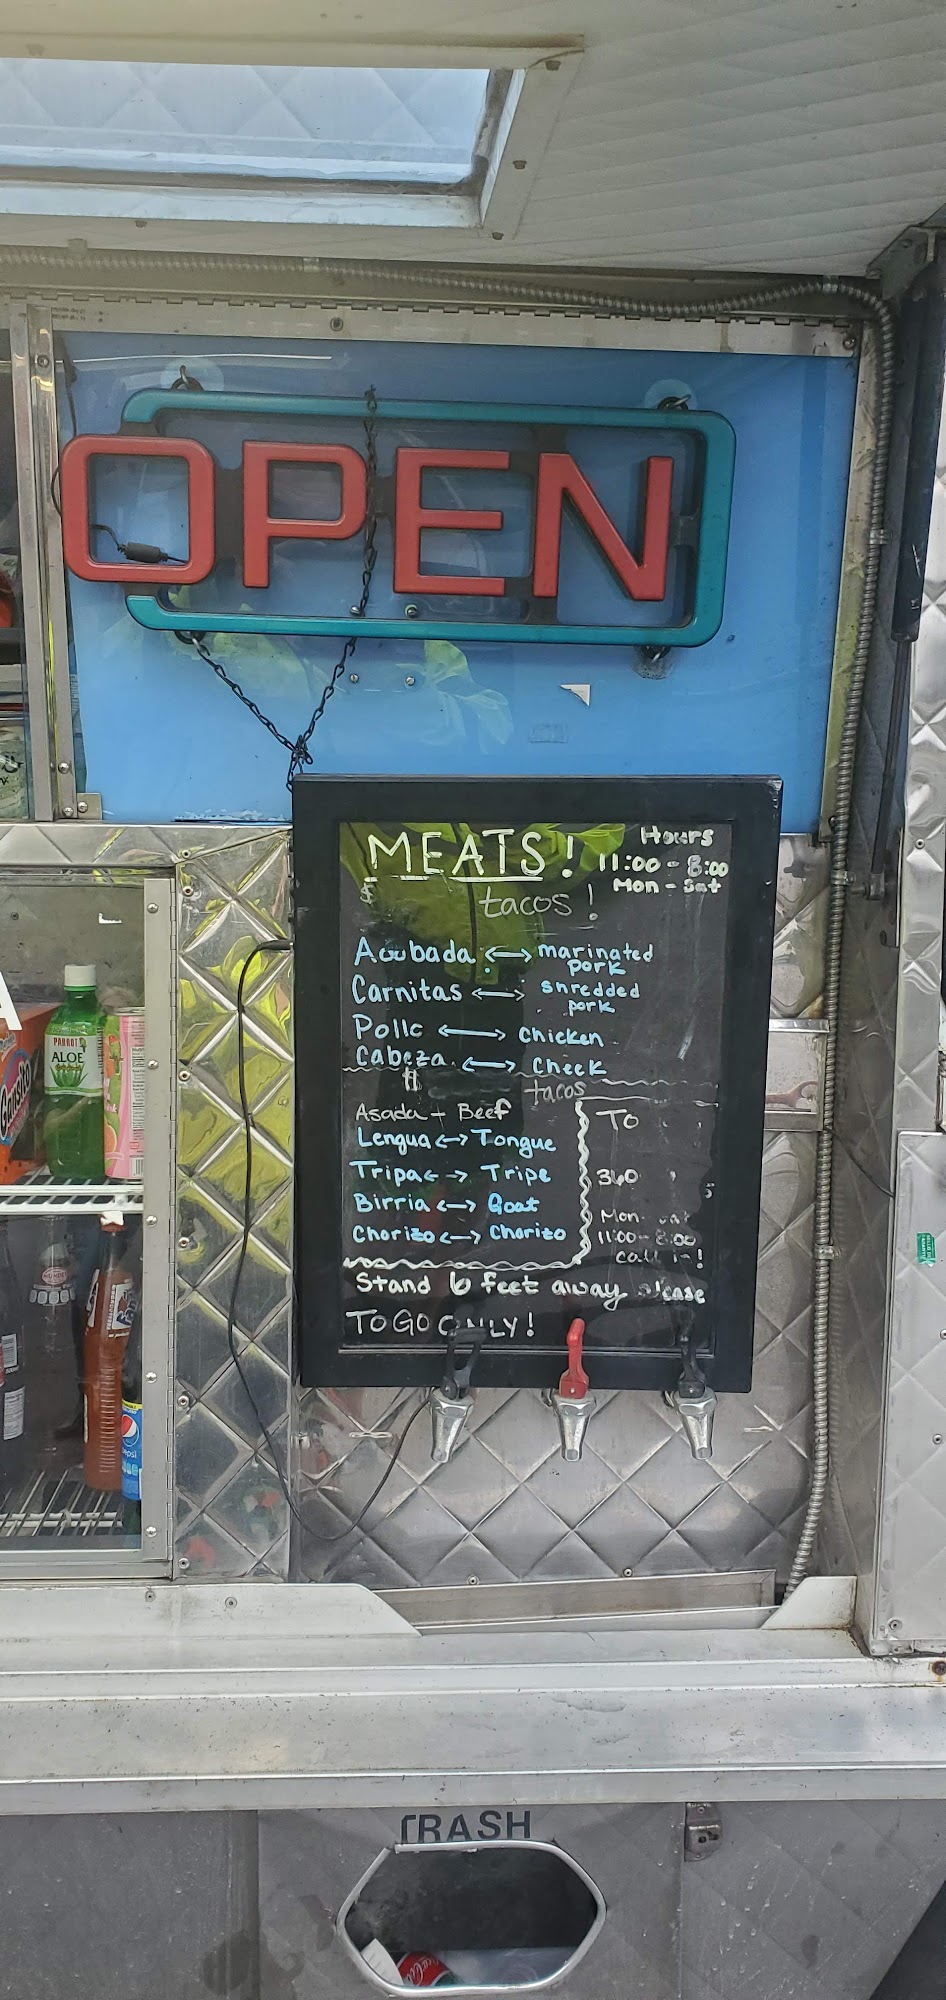 OPEN
MEATS!
Hours
11:00 - 8:00
Mon - Sat
tacos!
Adobada <-> marinated
pork
Carnitas <-> shredded
pork
Pollo <-> chicken
Cabeza <-> Cheek
tacos
Asada - Beef
Lengua <-> Tongue
Tripa <-> Tripe
Birria <-> Goat
Chorizo <-> Chorizo
TO
360
Mon- Sat
11:00 - 8:00
call in!
Stand 6 feet away please
TO GO ONLY!
PARROT
ALOE
pepsi
TRASH